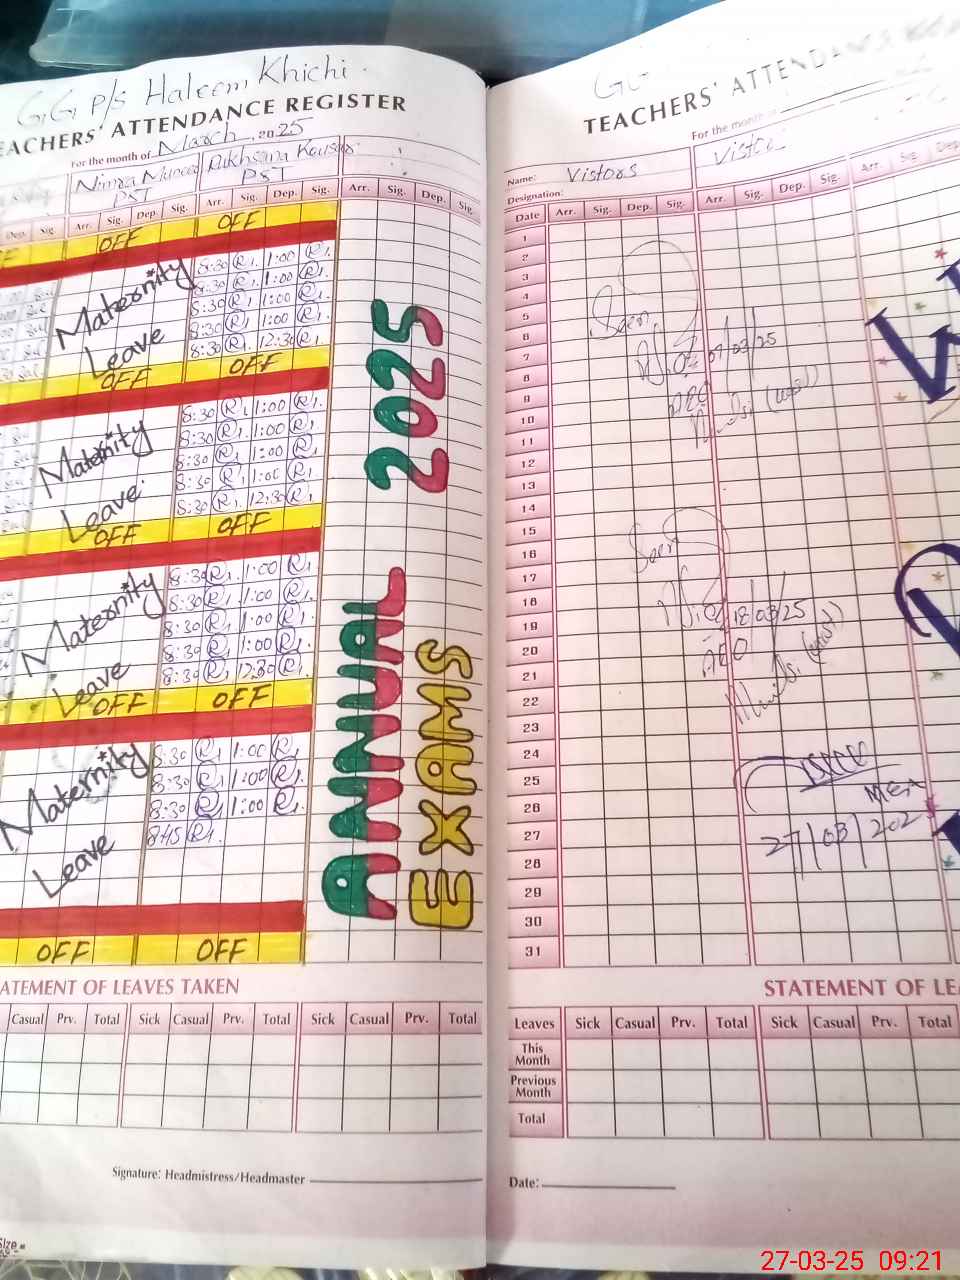 G.G.P/S Haleem Khichi
TEACHERS' ATTENDANCE REGISTER
For the month of March 2025
Rukhsana Kousar
PST PST
Dep. Sig. Arr. Sig. Dep. Sig. Arr. Sig. Dep. Sig. Arr. Sig. Dep. Sig.
OFF OFF
Maternity Leave
8:30 R. 1:00 R.
8:30 R. 1:00 R.
8:30 R. 1:00 R.
8:30 R. 1:00 R.
8:30 R. 12:30 R.
OFF OFF
Maternity Leave
8:30 R. 1:00 R.
8:30 R. 1:00 R.
8:30 R. 1:00 R.
8:30 R. 1:00 R.
8:30 R. 12:30 R.
OFF OFF
Maternity Leave
8:30 R. 1:00 R.
8:30 R. 1:00 R.
8:30 R. 1:00 R.
8:30 R. 1:00 R.
8:30 R. 12:30 R.
OFF OFF
Maternity Leave
8:30 R. 1:00 R.
8:30 R. 1:00 R.
8:30 R. 1:00 R.
8:45 R.
OFF OFF
ANNUAL 2025
EXAMS
STATEMENT OF LEAVES TAKEN
Casual Prv. Total Sick Casual Prv. Total Sick Casual Prv. Total
Signature: Headmistress/Headmaster
TEACHERS' ATTENDANCE
For the month of
Name: Vistors
Designation:
Date Arr. Sig. Dep. Sig. Arr. Sig. Dep. Sig. Arr. Sig. Dep.
1
2
3
4
5
6
7
8
9
10
11
12
13
14
15
16
17
18
19
20
21
22
23
24
25
26
27
28
29
30
31
Seen
07/03/25
AEO
Seen
18/03/25
AEO
MEA
27/03/202
STATEMENT OF LEA
Leaves Sick Casual Prv. Total Sick Casual Prv. Total
This Month
Previous Month
Total
Date:
27-03-25 09:21